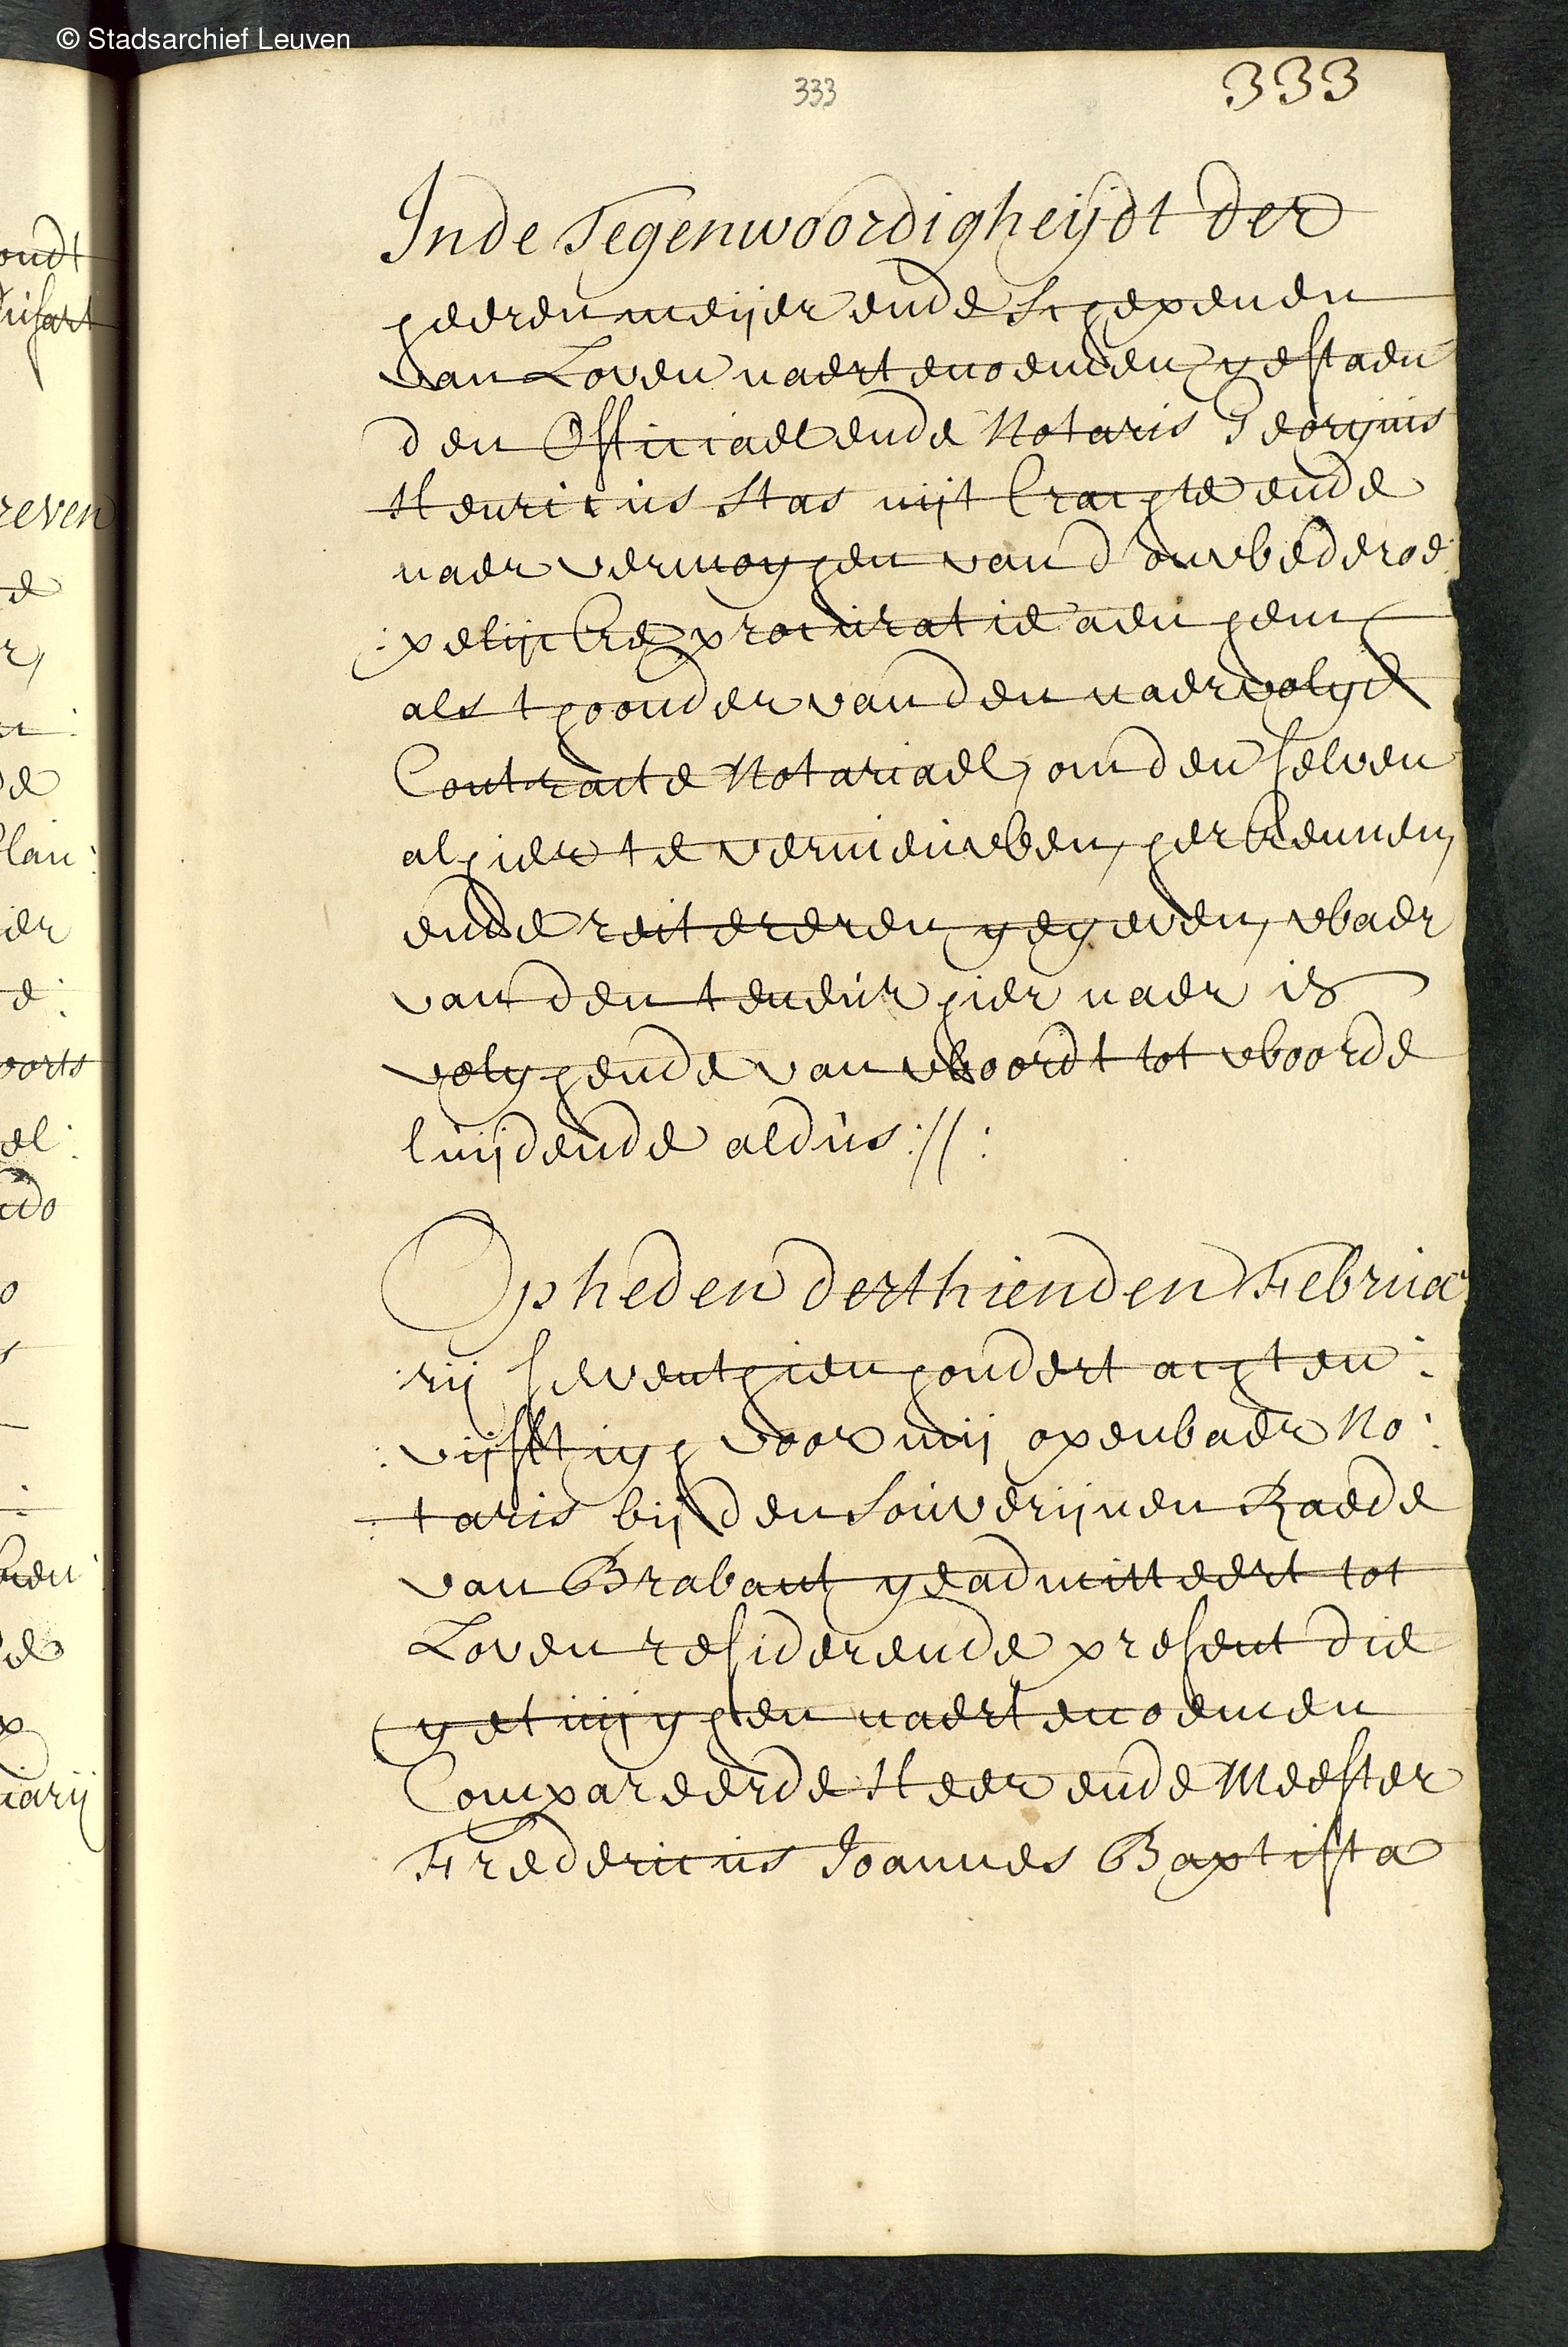 © Stadsarchief Leuven
333
333
Inde Tegenwoordigheijdt der
heeren meijer ende schepenen
van Loven naertenoemen, gestaen
den Officiael ende Notaris Georgius
Henricus Stas uijt Crachte ende
naer vermoghen van d'onwederroe:
:pelijcke procuratie aen hem
als thoonder van den naervolgd
Contracte Notariael, om den selven
alhier te vernieuwen, herkennen,
ende reitereren, gegeven, waer
van den teneur hier naer is
volghende van woordt tot woorde
luijdende aldus: //:
Op heden derthienden Februa
:rij seventhien hondert achten:
:vijfftigh voor mij openbaer No:
:taris bij den Souverijnen Raede
van Brabant, geadmitteert tot
Loven residerende present die
getuijghen naertenoemen
Compareerde Heer ende Meester
Fredericus Joannes Baptista
oudt
reven
e
r,
de
ier
e:
oorts
el:
do
o
uarij